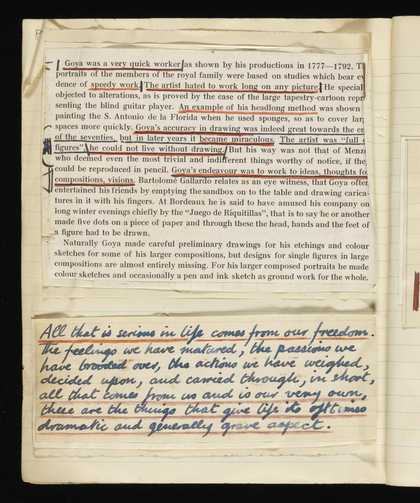 Goya was a very quick worker as shown by his productions in 1777—1792. T
portraits of the members of the royal family were based on studies which bear ev
dence of speedy work. The artist hated to work long on any picture. He special
objected to alterations, as is proved by the case of the large tapestry-cartoon repr
senting the blind guitar player. An example of his headlong method was shown
painting the S. Antonio de la Florida when he used sponges, so as to cover lar
spaces more quickly. Goya's accuracy in drawing was indeed great towards the en
of the seventies, but in later years it became miraculous. The artist was "full
figures". he could not live without drawing. But his way was not that of Menz
who deemed even the most trivial and indifferent things worthy of notice, if the
could be reproduced in pencil. Goya's endeavour was to work to ideas, thoughts fo
compositions, visions. Bartolomé Gallardo relates as an eye witness, that Goya ofte
entertained his friends by emptying the sandbox on to the table and drawing carica
tures in it with his fingers. At Bordeaux he is said to have amused his company on
long winter evenings chiefly by the "Juego de Riquitillas", that is to say he or another
made five dots on a piece of paper and through these the head, hands and the feet of
a figure had to be drawn.
Naturally Goya made careful preliminary drawings for his etchings and colour
sketches for some of his larger compositions, but designs for single figures in large
compositions are almost entirely missing. For his larger composed portraits he made
colour sketches and occasionally a pen and ink sketch as ground work for the whole.
All that is serious in life comes from our freedom.
The feelings we have matured, the passions we
have brooded over, the actions we have weighed,
decided upon, and carried through, in short,
all that comes from us and is our very own,
these are the things that give life its ofttimes
dramatic and generally grave aspect.